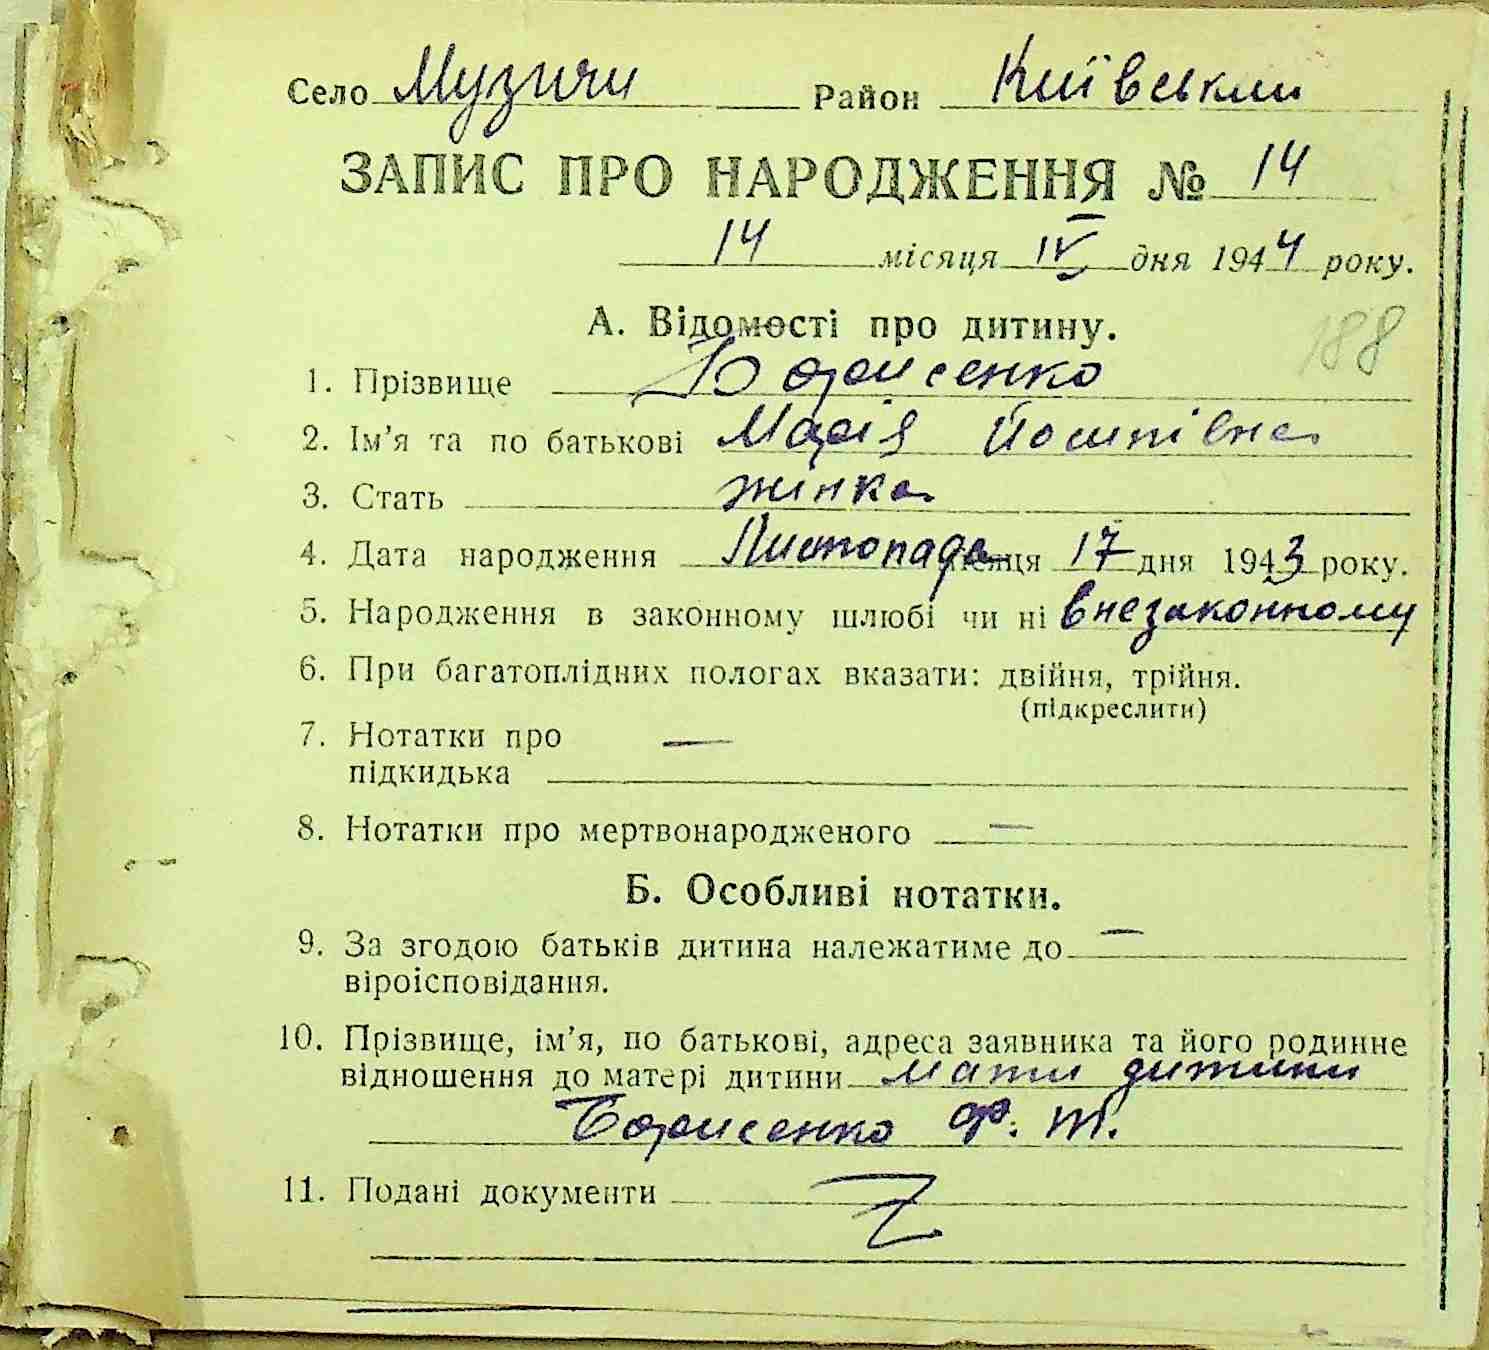 Село Музичи Район Київський
ЗАПИС ПРО НАРОДЖЕННЯ № 14
14 місяця IV дня 1944 року.
А. Відомості про дитину.
188
1. Прізвище Борисенко
2. Ім'я та по батькові Марія Йосипівна
3. Стать жінка
4. Дата народження Листопада місяця 17 дня 1943 року.
5. Народження в законному шлюбі чи ні внезаконному
6. При багатоплідних пологах вказати: двійня, трійня.
(підкреслити)
7. Нотатки про —
підкидька
8. Нотатки про мертвонародженого —
Б. Особливі нотатки.
9. За згодою батьків дитина належатиме до —
віроісповідання.
10. Прізвище, ім'я, по батькові, адреса заявника та його родинне
відношення до матері дитини мати дитини
Борисенко Ф. Т.
11. Подані документи